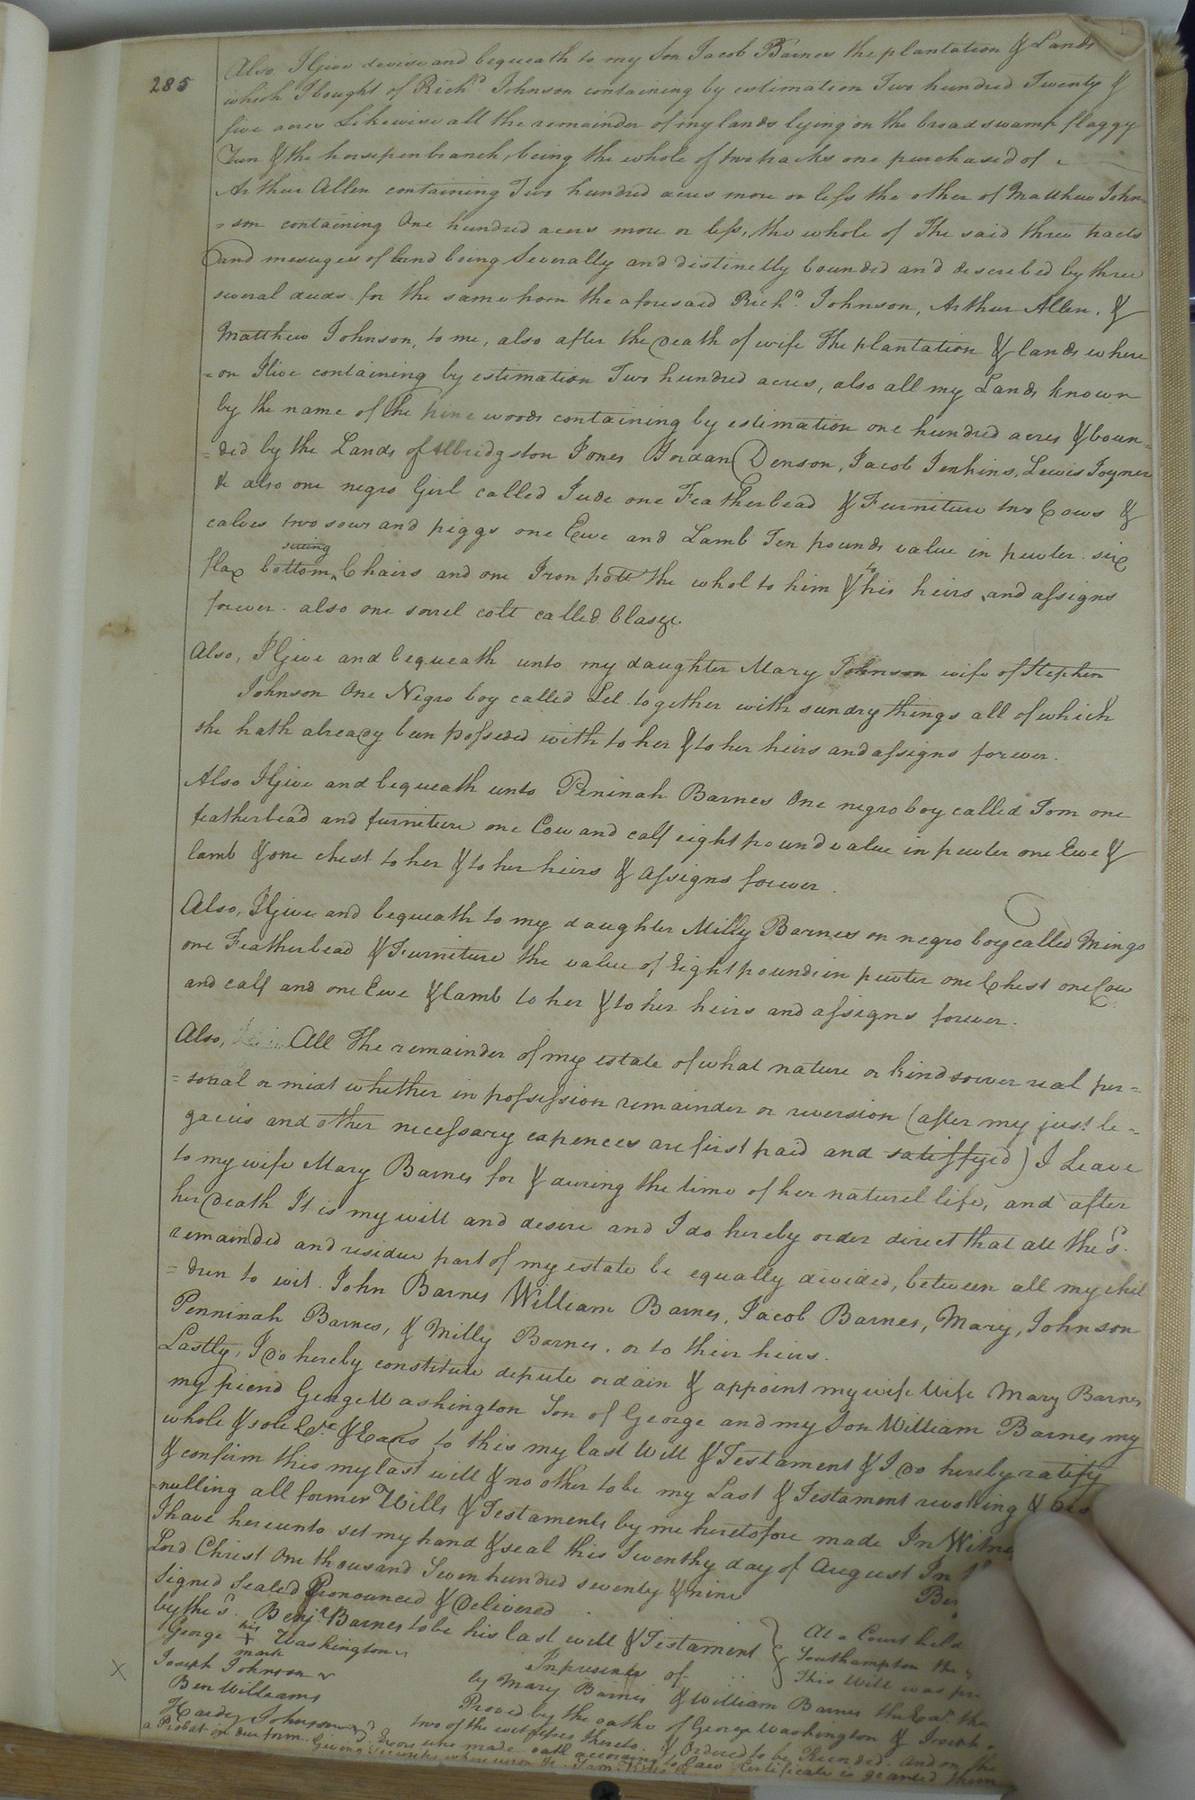 285
Also, I Give devise and bequeath to my Son Jacob Barnes the plantation & Lands
which I bought of Richd. Johnson containing by estimation Two hundred Twenty &
five acres Likewise all the remainder of my lands lying on the broad swamp flaggy
Run & the horsepen branch, being the whole of two tracks one purchased of
Arthur Allen containing Two hundred acres more or less the other of Matthew John-
=son containing One hundred acres more or less, the whole of The said three tracts
and mesuges of land being Severally and distinctly bounded and described by three
several deeds for the same from the aforesaid Richd. Johnson, Arthur Allen, &
Matthew Johnson, to me, also after the Death of wife The plantation & lands where
=on I live containing by estimation Two hundred acres, also all my Lands known
by the name of the pine woods containing by estimation one hundred acres & boun=
=ded by the Lands of Albridgston Jones Jordan Denson, Jacob Jenkins, Lewis Joyner
& also one negro Girl called Jude one Featherbead & Furniture two Cows &
calves two sows and piggs one Ewe and Lamb Ten pounds value in pewter six
flax bottom sitting Chairs and one Iron pott the whol to him & to his heirs and assigns
forever. also one sorrel colt called blaze.
Also, I Give and bequeath unto my daughter Mary Johnson wife of Stephen
Johnson One Negro boy called Sel together with sundry things all of which
she hath already been possesed with to her & to her heirs and assigns forever.
Also I Give and bequeath unto Peninah Barnes One negro boy called Tom one
featherbead and furniture one Cow and calf eight pound value in pewter one Ewe &
lamb & one chest to her & to her heirs & assigns forever.
Also, I Give and bequeath to my daughter Milly Barnes on negro boy called Mingo
one Featherbead & Furniture the value of Eight pounds in pewter one Chest one Cow
and calf and one Ewe & lamb to her & to her heirs and assigns forever.
Also, All The remainder of my estate of what nature or kind soever real per=
=sonal or mixt whether in possession remainder or reversion (after my just le=
gacies and other necessary expences are first paid and satisfyed) I Leave
to my wife Mary Barnes for & during the time of her naturel life, and after
her Death It is my will and desire and I do hereby order direct that all the sd.
remainded and residue part of my estate be equally divided, between all my chil
=dren to wit. John Barnes William Barnes, Jacob Barnes, Mary, Johnson
Penninah Barnes, & Milly Barnes. or to their heirs.
Lastly, I do hereby constitute depute ordain & appoint my wife Wife Mary Barnes
my friend George Washington Son of George and my Son William Barnes my
whole & sole Exx & Exors to this my last Will & Testament & I do hereby ratify
& confirm this my last will & no other to be my Last & Testament revolking & dis
=nulling all former Wills & Testaments by me heretofore made In Witne
I have hereunto set my hand & seal this Twenthy day of August In
Lord Christ One thousand Seven hundred seventy & nine
Signed Sealed Pronounced & Delivered Ben
by the sd. Benja. Barnes to be his last will & Testament
In presents of
George his + mark Washington
Joseph Johnson
Ben Williams
Hardy Johnson
At a Court held
Southampton the
This Will was pre
by Mary Barnes & William Barnes the Exrs. the
Proved by the oaths of George Washington & Joseph
two of the witnesses thereto. & Ordered to be Recorded. And on the
who made oath according to Law Certificate is granted them
a Probat in due form. Giving
X